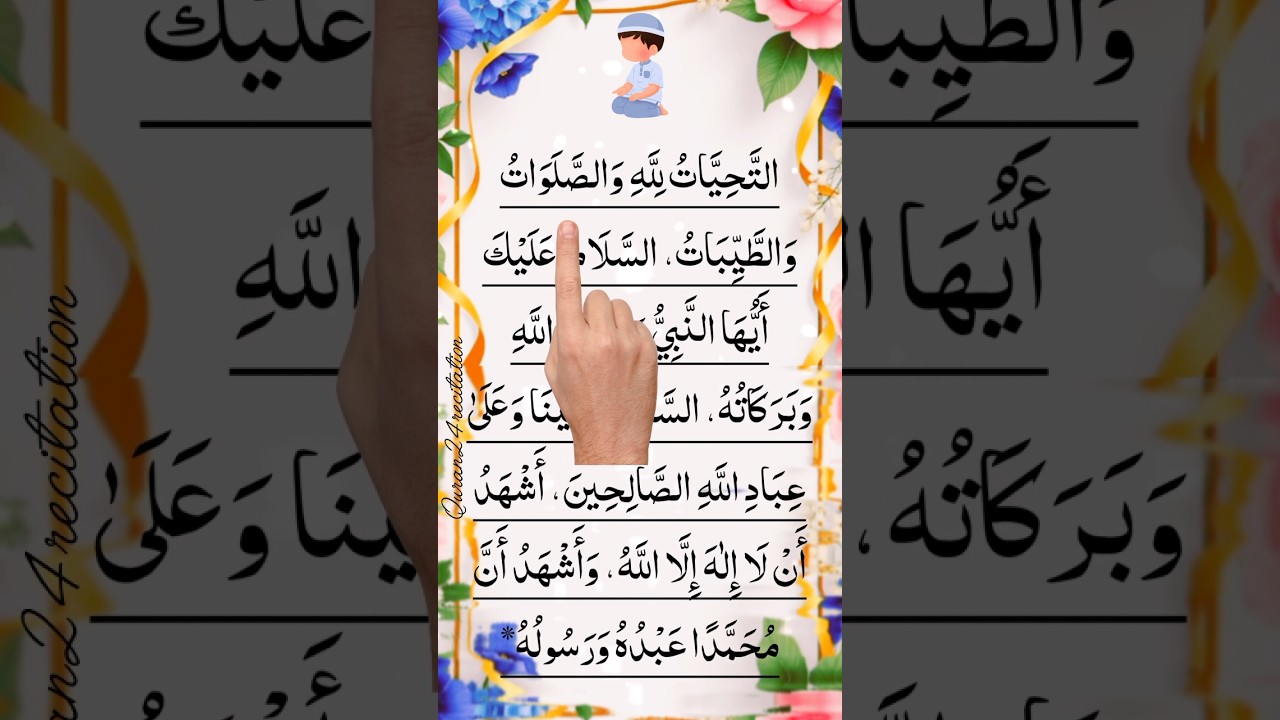 التَّحِيَّاتُ لِلَّهِ وَالصَّلَوَاتُ
وَالطَّيِّبَاتُ، السَّلَامُ عَلَيْكَ
أَيُّهَا النَّبِيُّ اللَّهِ
وَبَرَكَاتُهُ، وَعَلَىٰ
عِبَادِ اللَّهِ الصَّالِحِينَ، أَشْهَدُ
أَنْ لَا إِلٰهَ إِلَّا اللَّهُ، وَأَشْهَدُ أَنَّ
مُحَمَّدًا عَبْدُهُ وَرَسُولُهُ*
Quran24recitation